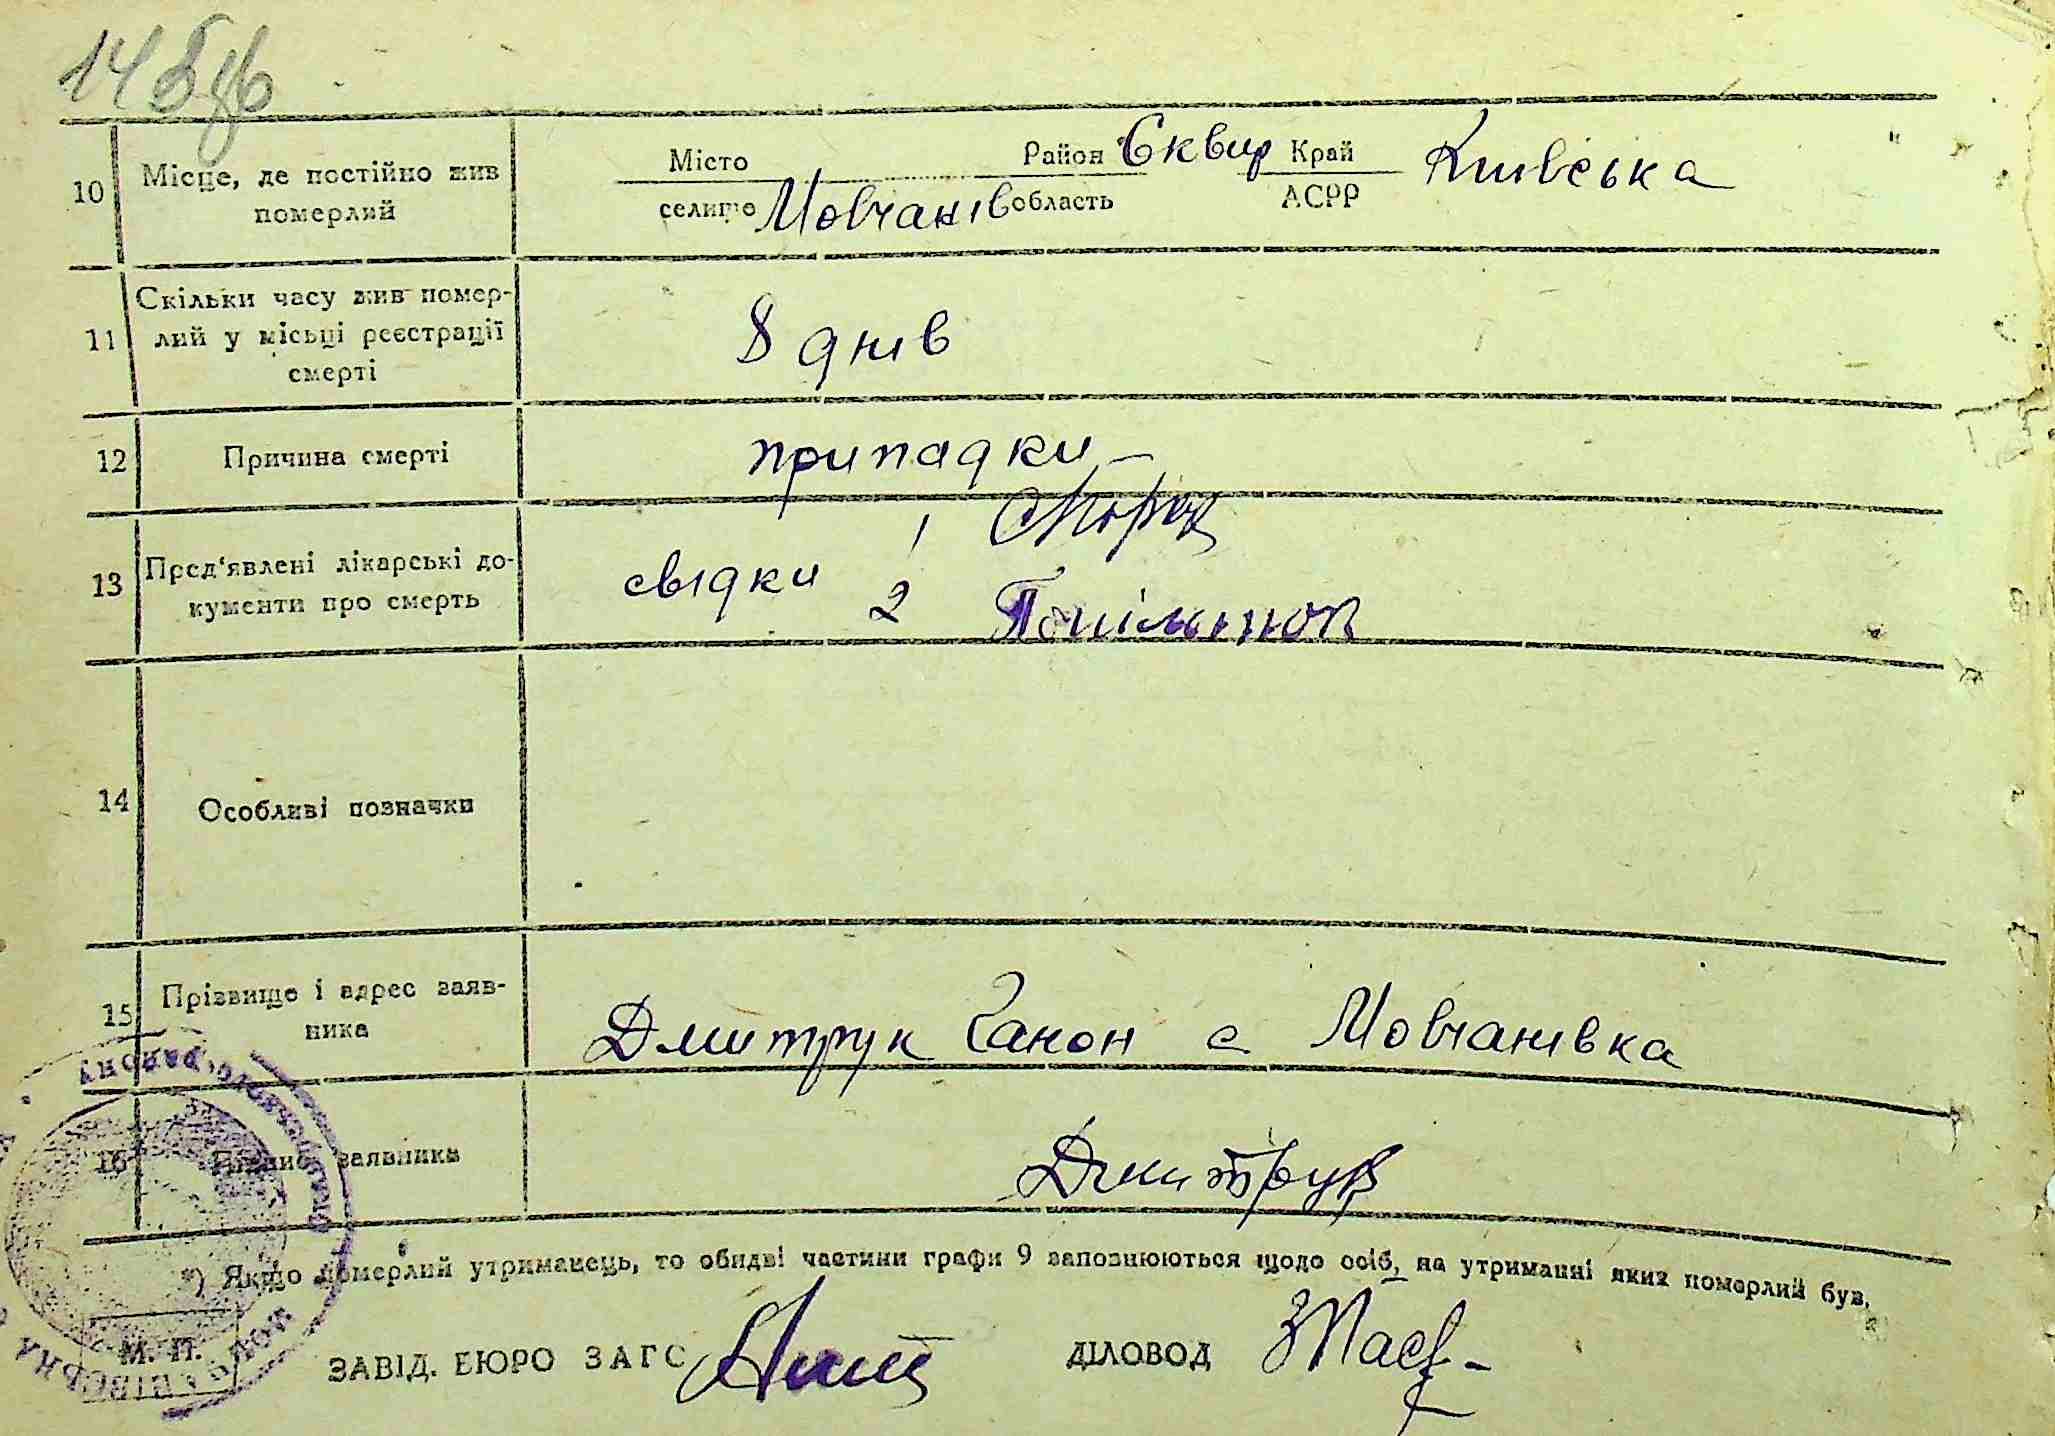 14 зв
10 Місце, де постійно жив померлий
Місто Район Сквир Край Київська
селище Мовчанів область АСРР
11 Скільки часу жив помер-
лий у місці реєстрації
смерті
8 днів
12 Причина смерті припадки
13 Пред'явлені лікарські до-
кументи про смерть
свідки 1 Мороз
2
14 Особливі позначки
15 Прізвище і адрес заяв-
ника
Дмитрук Ганон с Мовчанівка
16 Підпис заявника Дмитрук
*) Якщо померлий утриманець, то обидві частини графи 9 заповнюються щодо осіб, на утриманні яких померлий був.
М. П.
ЗАВІД. БЮРО ЗАГС ДІЛОВОД